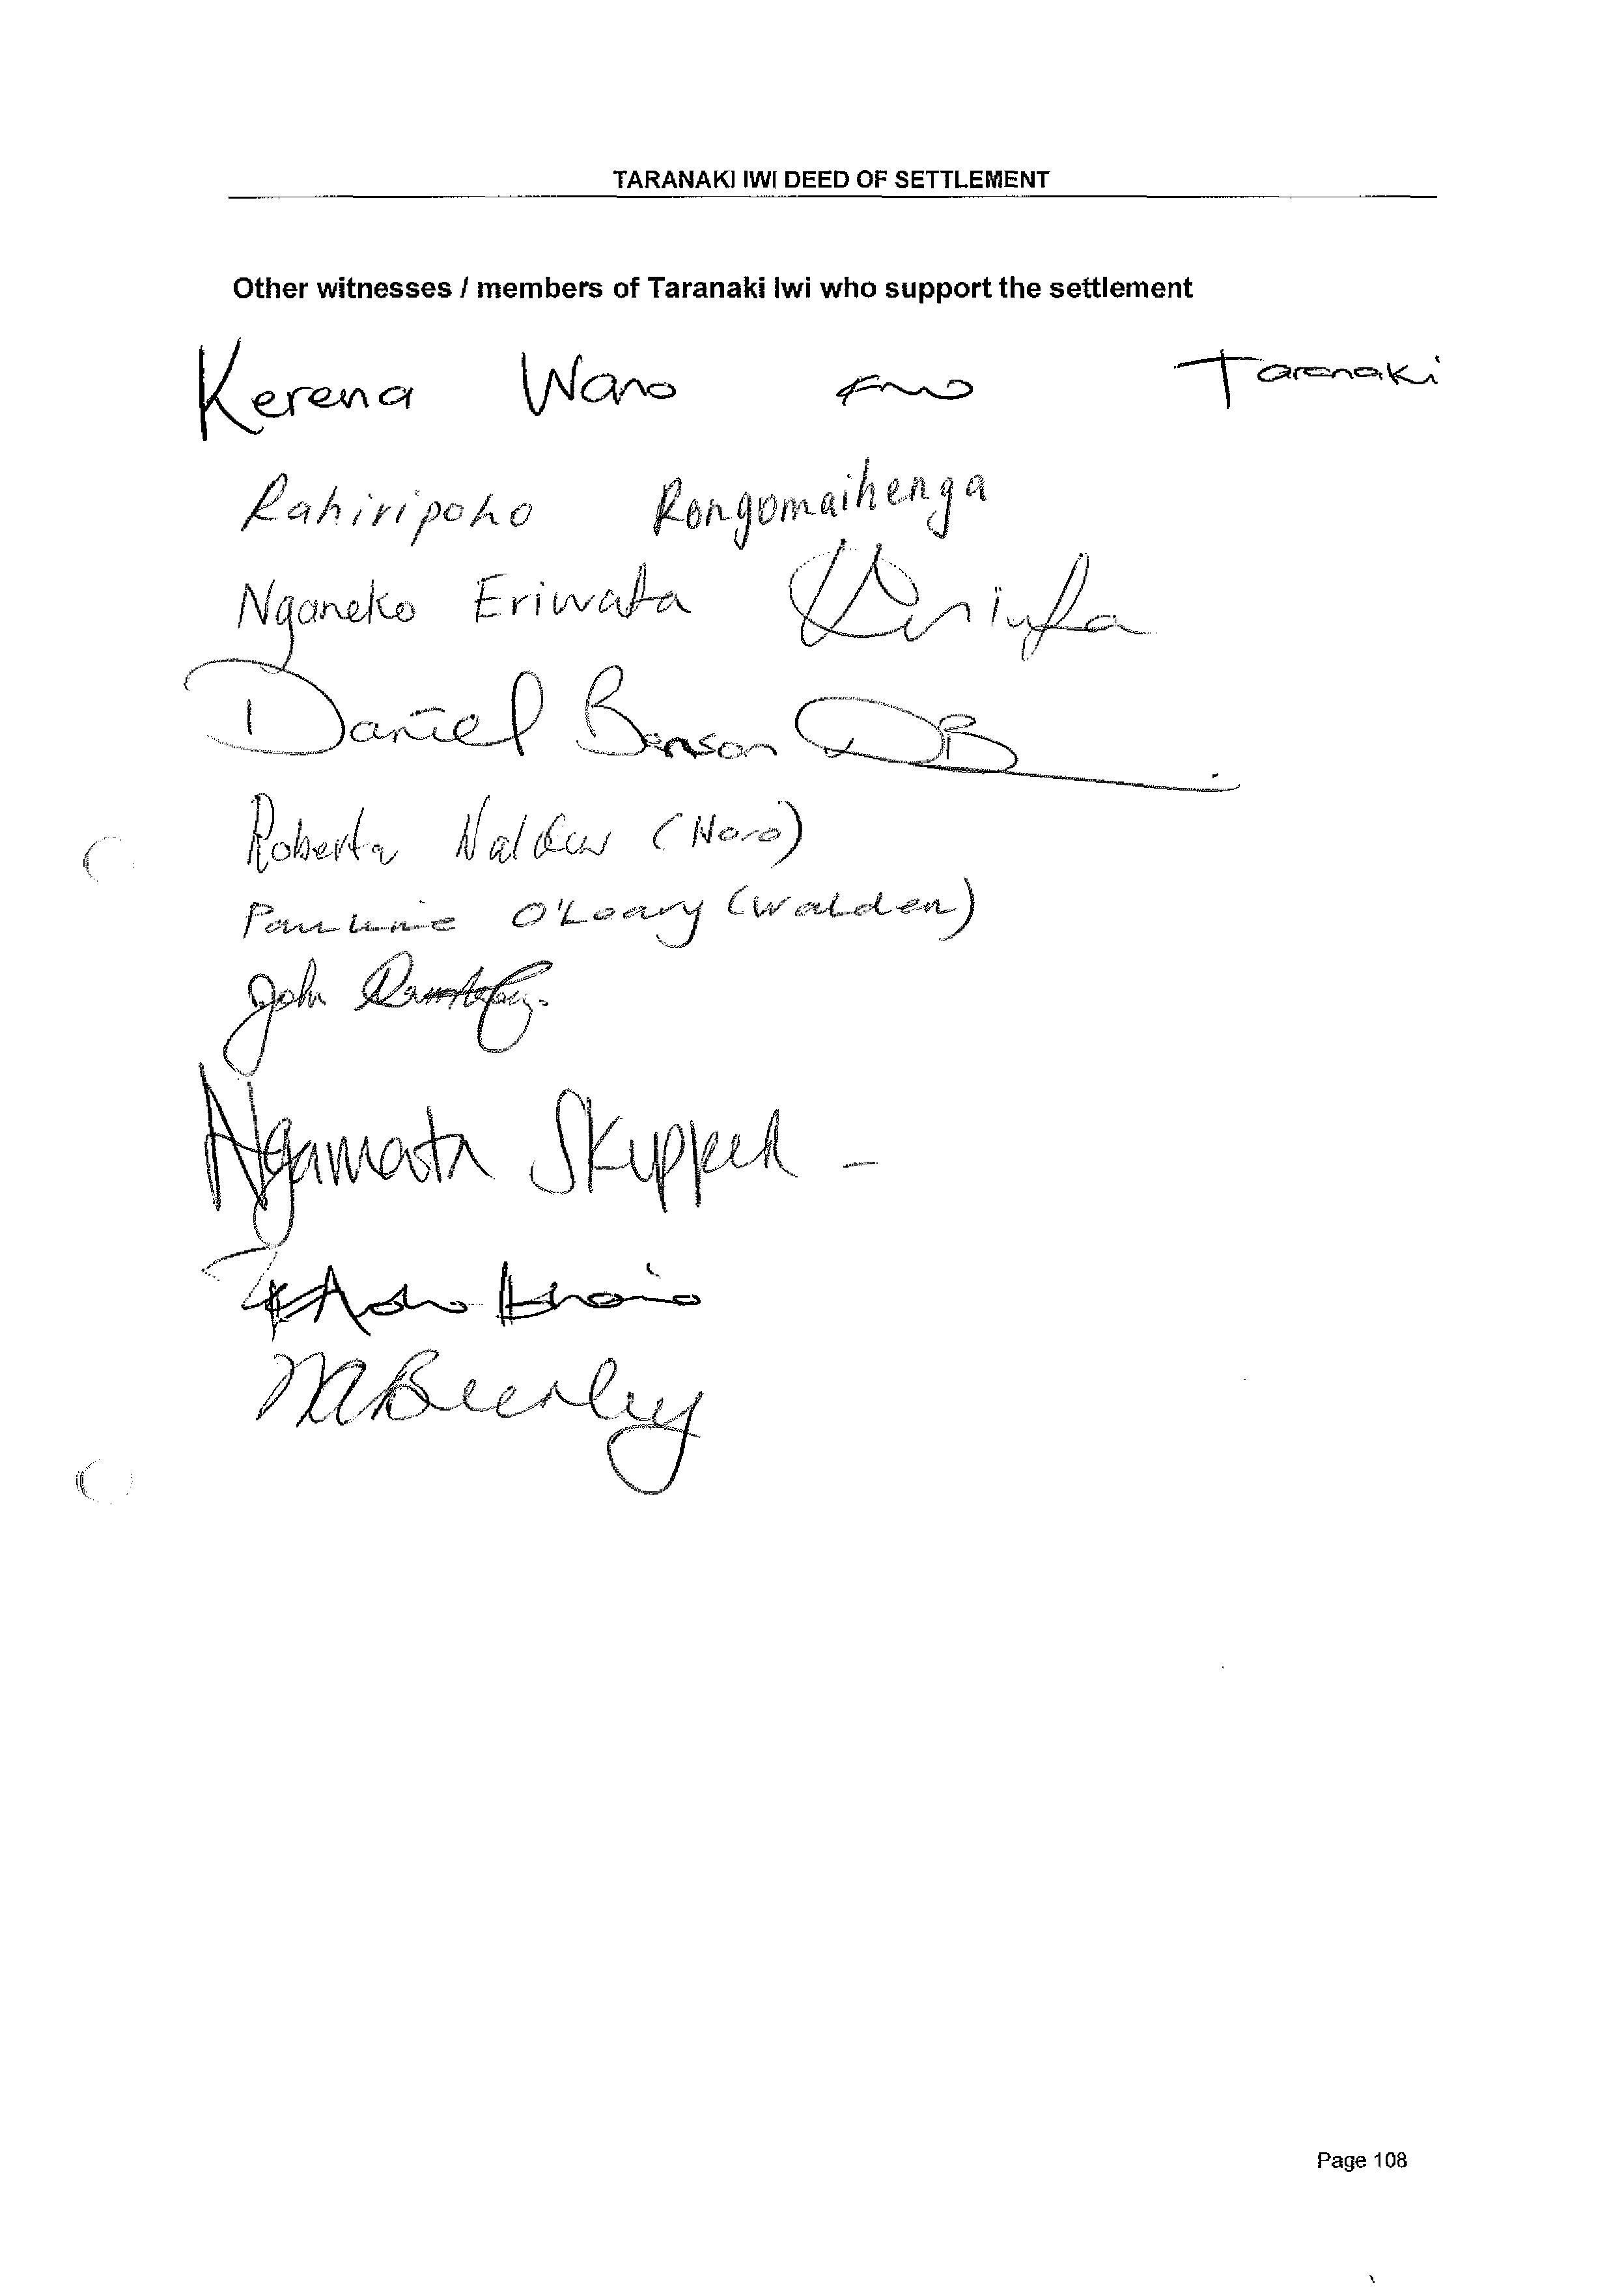 TARANAKI IWI DEED OF SETTLEMENT
Other witnesses / members of Taranaki Iwi who support the settlement
Kerena Wano Taranaki
Rahiripoho Rongomaihenga
Nganeko Eriwata
Daniel Benson DB
Roberta (Horo)
Pauline O'Leary (Walden)
John
Ngamata Skipper -
M Beverley
Page 108